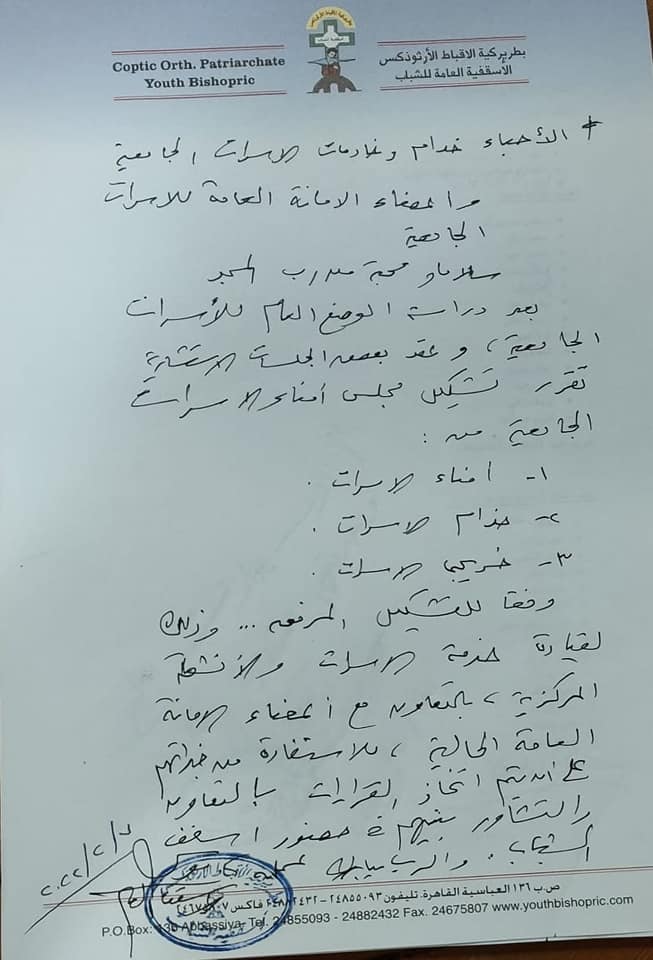 Coptic Orth. Patriarchate
Youth Bishopric
بطريركية الاقباط الأرثوذكس
الأسقفية العامة للشباب
الأحباء خدام وخادمات الاسرات الجامعية
واعضاء الامانة العامة للاسرات
الجامعية
سلام ومحبة من رب المجد
بعد دراسة الوضع العام للأسرات
الجامعية، وعقد بعض الجلسات الاستشارية
تقرر تشكيل مجلس أمناء الاسرات
الجامعية من :
١- أمناء الاسرات .
٢- خدام الاسرات .
٣- خريجى الاسرات .
وفقا للتشكيل المرفق ... وذلك
لقيادة خدمة الاسرات والأنشطة
المركزية ، بالتعاون مع أعضاء الامانة
العامة الحالية ، للاستفادة من خبراتهم
على أن يتم اتخاذ القرارات بالتعاون
والتشاور بينهم فى حضور اسقف
الشباب . والرب يبارك
ص.ب ١٣٦ العباسية القاهرة. تليفون ٢٤٨٥٥٠٩٣ - ٢٤٨٨٢٤٣٢ فاكس
P.O.Box: 136 Abbassiya- Tel. 24855093 - 24882432 Fax. 24675807 www.youthbishopric.com